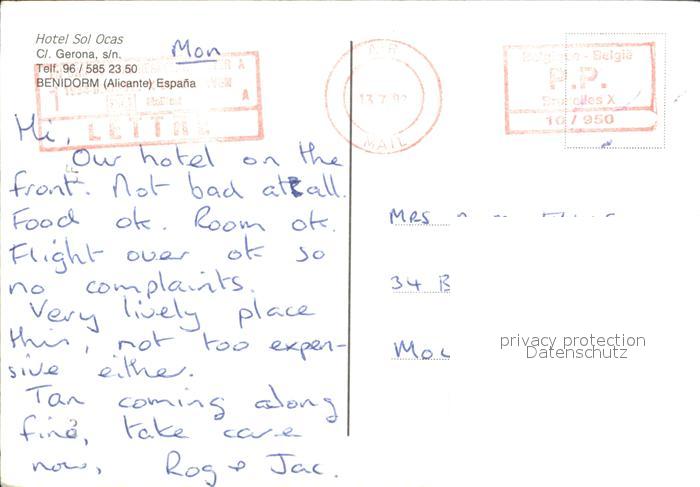 Hotel Sol Ocas
C/. Gerona, s/n.
Telf. 96 / 585 23 50
BENIDORM (Alicante) España
Mon
LETTRE
AIR
13.7.92
MAIL
Belgique - België
P.P.
Bruxelles X
10 / 950
Hi,
Our hotel on the
front. Not bad at all.
Food ok. Room ok.
Flight over ok so
no complaints.
Very lively place
this, not too expen-
sive either.
Tan coming along
fine, take care
now, Rog + Jac.
MRS
34 B
Mo
privacy protection
Datenschutz